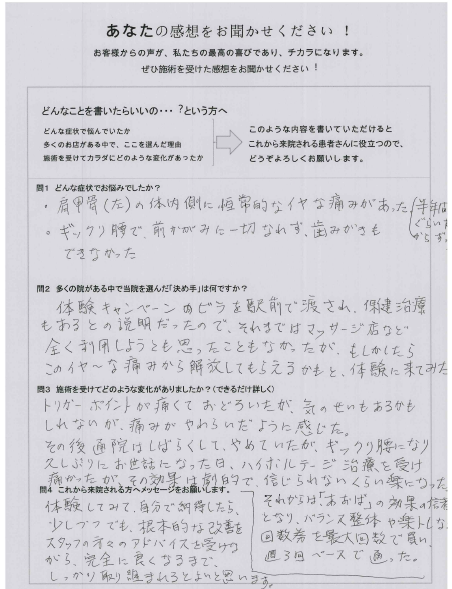 あなたの感想をお聞かせください！
お客様からの声が、私たちの最高の喜びであり、チカラになります。
ぜひ施術を受けた感想をお聞かせください！
どんなことを書いたらいいの・・・?という方へ
どんな症状で悩んでいたか
多くのお店がある中で、ここを選んだ理由
施術を受けてカラダにどのような変化があったか
このような内容を書いていただけると
これから来院される患者さんに役立つので、
どうぞよろしくお願いします。
問1 どんな症状でお悩みでしたか？
・肩甲骨(左)の体内側に恒常的なイヤな痛みがあった(半年
ぐらい
からず
・ギックリ腰で、前かがみに一切なれず、歯みがきも
できなかった
問2 多くの院がある中で当院を選んだ「決め手」は何ですか？
体験キャンペーンのビラを駅前で渡され、保健治療
もあるとの説明だったので、それまではマッサージ店など
全く利用しようとも思ったこともなかったが、もしかしたら
このイヤ～な痛みから解放してもらえるかもと、体験に来てみた
問3 施術を受けてどのような変化がありましたか？(できるだけ詳しく)
トリガーポイントが痛くておどろいたが、気のせいもあるかも
しれないが、痛みがやわらいだように感じた。
その後通院はしばらくして、やめていたが、ギックリ腰になり
久しぶりにお世話になった日、ハイボルテージ治療を受け
痛かったが、その効果は劇的で、信じられないくらい楽になった
問4 これから来院される方へメッセージをお願いします。
体験してみて、自分で納得したら、
少しづつでも、根本的な改善を
スタッフの方々のアドバイスを受けな
がら、完全に良くなるまで、
しっかり取り組まれるとよいと思います。
それからは「あおば」の効果の信者
となり、バランス整体や楽トレな
回数券を最大回数で買い、
週3回ペースで通った。